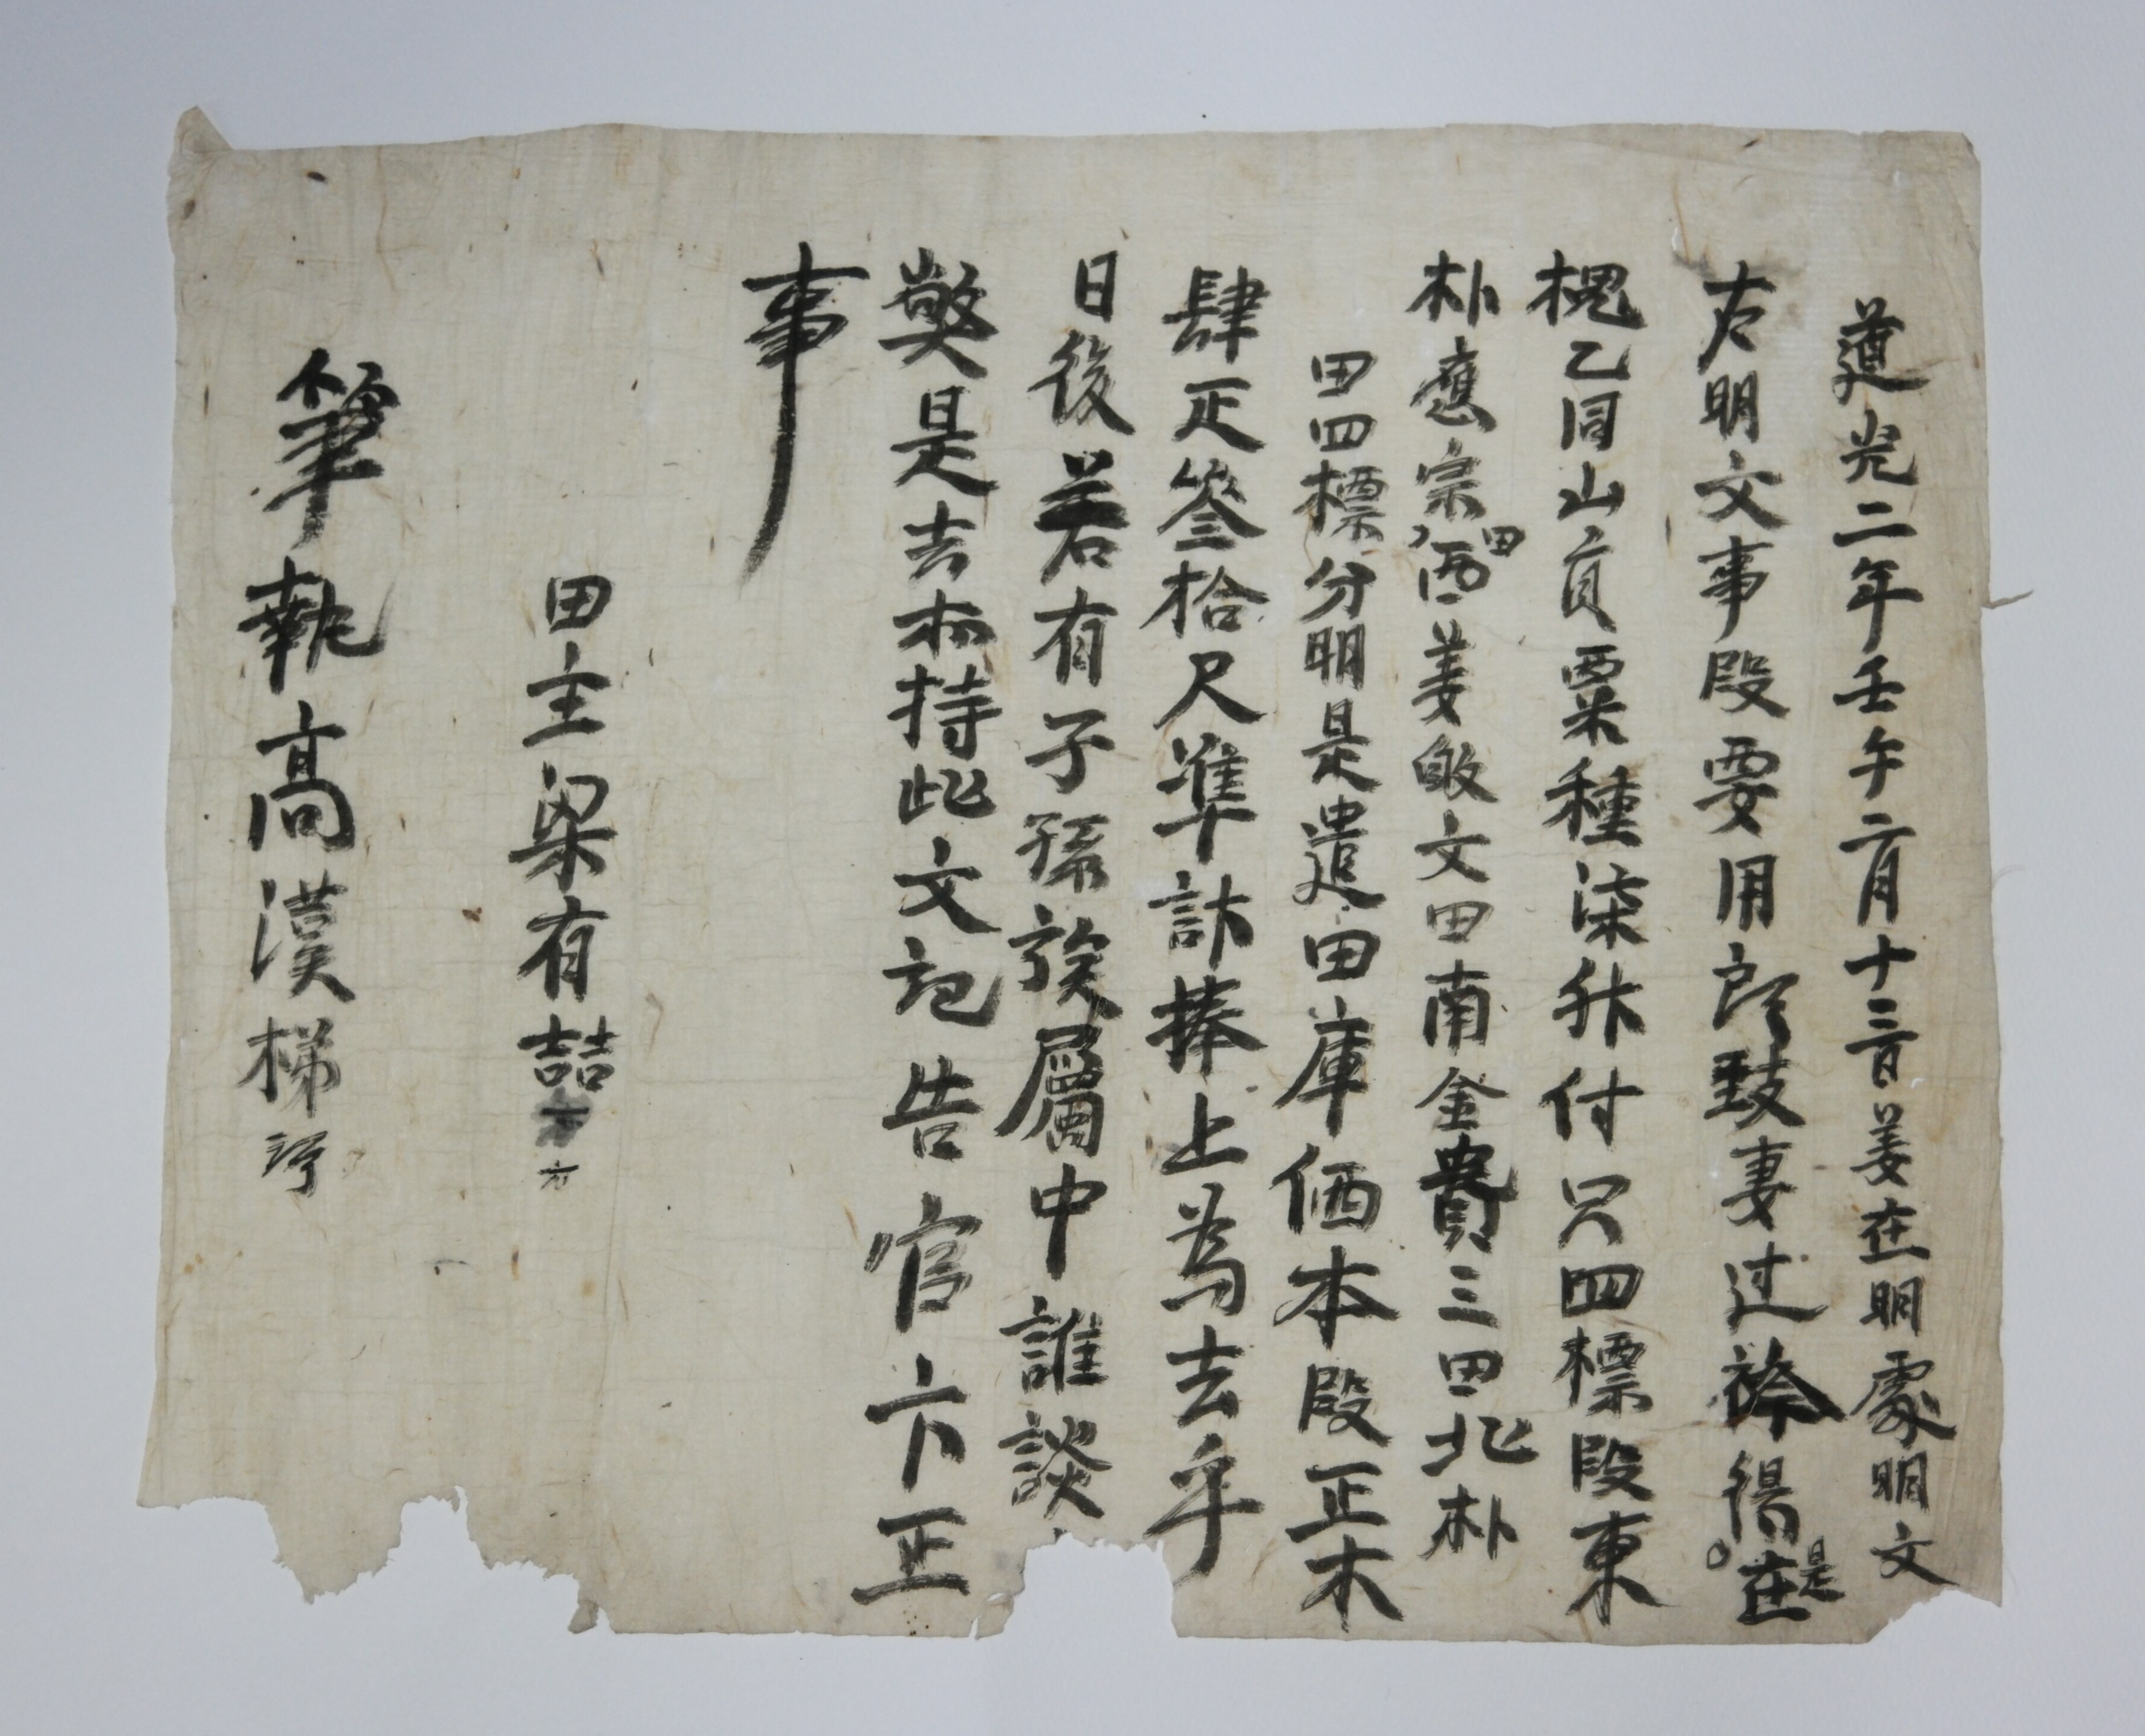 道光二年壬午二月十三日姜在明處明文
右明文事段要用所致妻过衿得是在
槐乙同山員粟種柒升付只四標段東
朴應宗田西姜敀文田南金貴三田北朴
田四標分明是遣田庫価本段正木
肆疋叁拾尺準計捧上為去乎
日後若有子孫族屬中誰談
獘是去木持此文記告官卞正
事
田主梁有喆
筆執高漢梯